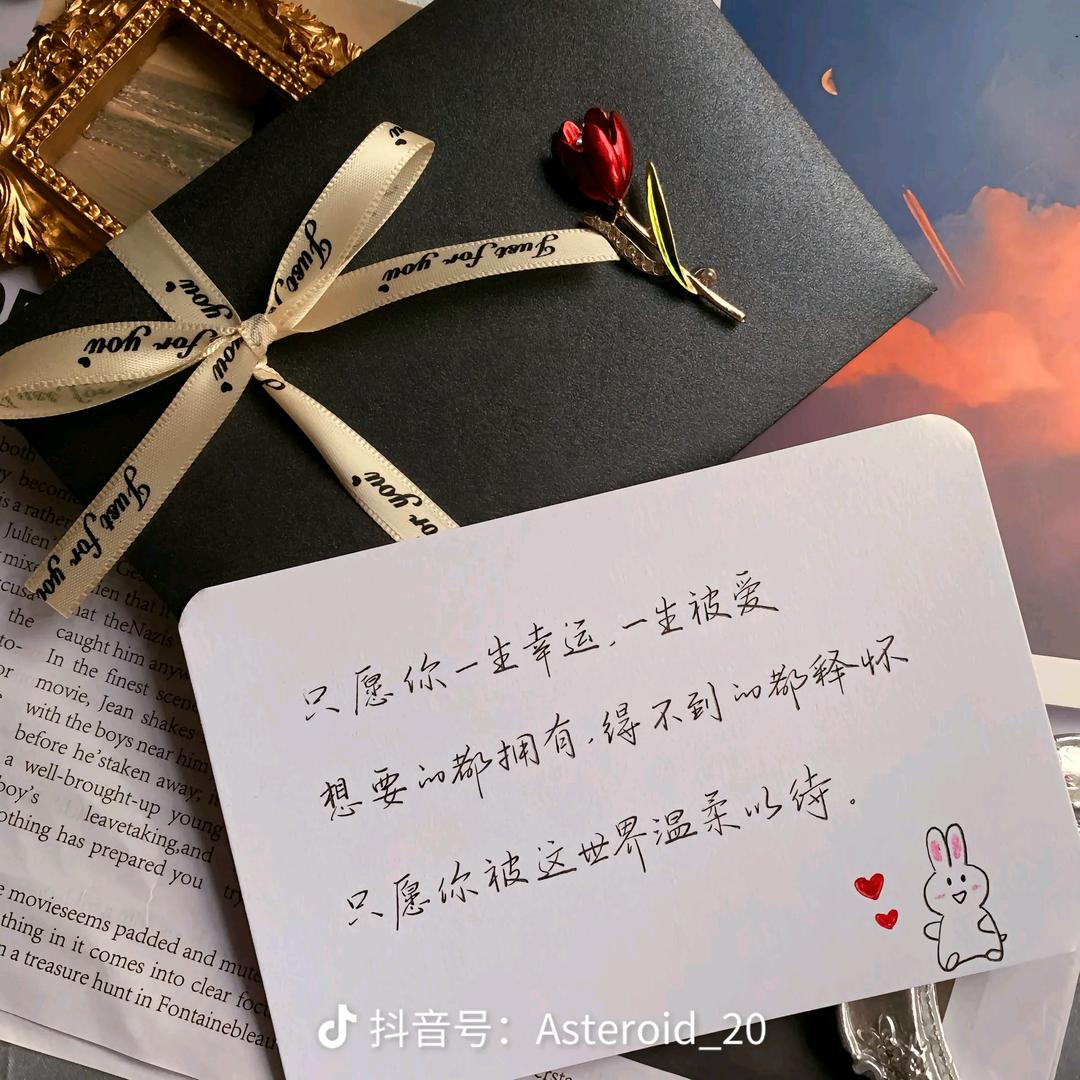 Just for you
Just for you
you
Just for you
you
Just for you
you
for you
只愿你一生幸运,一生被爱
想要的都拥有,得不到的都释怀
只愿你被这世界温柔以待。
both
y become
is a rather
Julien'
the
to-
hat theNazis
caught him anyw
In the finest scene
movie, Jean shakes
with the boys near him
before he'staken away;
a well-brought-up young
boy's leavetaking,and
othing has prepared you try
e movieseems padded and mute
thing in it comes into clear foc
n a treasure hunt in Fontainebleau
抖音号：Asteroid_20